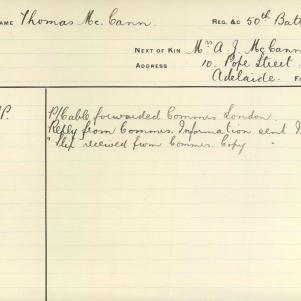 NAME Thomas Mc. Cann. REG. &c 50th Batt
NEXT OF KIN Mrs A. J. McCann
ADDRESS 10. Pope Street.
Adelaide. Fo
P. P/Cable forwarded Commrs London.
Reply from Commrs. Information sent
" Slip received from Commrs. Copy